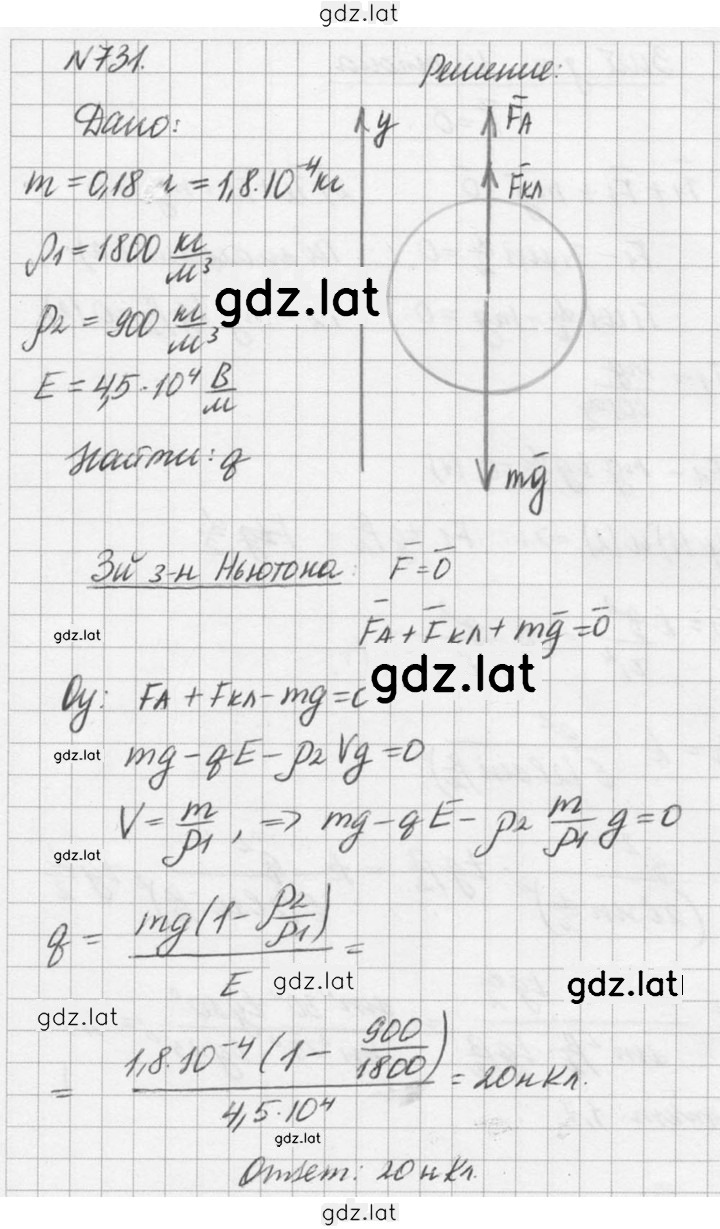 gdz.lat
№731.
Решение:
Дано:
m = 0,18 г = 1,8·10⁻⁴ кг
ρ1 = 1800 кг/м³
ρ2 = 900 кг/м³
E = 4,5·10⁴ В/м
Найти: q
y
F̄А
F̄кл
mḡ
gdz.lat
3й з-н Ньютона: F̄ = 0̄
gdz.lat
F̄А + F̄кл + mḡ = 0̄
gdz.lat
Оу: FА + Fкл - mg = c
gdz.lat
mg - qE - ρ2Vg = 0
V = m/ρ1, => mg - qE - ρ2 m/ρ1 g = 0
gdz.lat
q = mg(1 - ρ2/ρ1)/E =
gdz.lat
gdz.lat
gdz.lat
= 1,8·10⁻⁴(1 - 900/1800)/4,5·10⁴ = 20нКл.
gdz.lat
Ответ: 20нКл.
gdz.lat